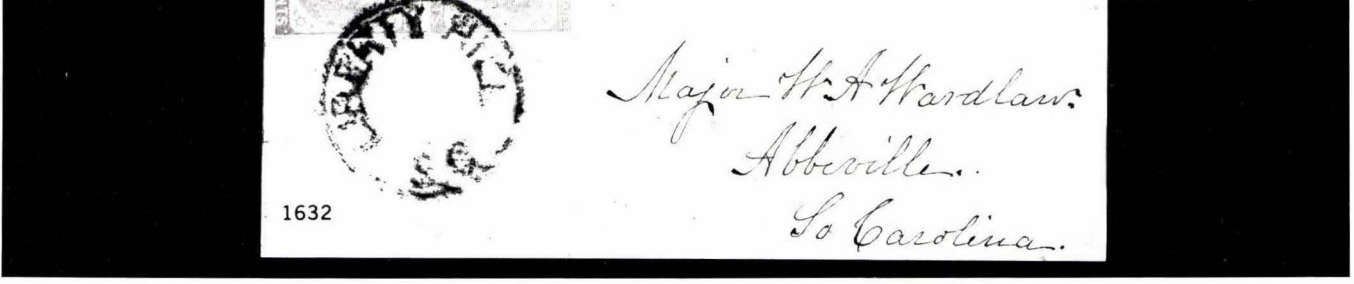 LIBERTY HILL
S.C.
Major W A Wardlaw.
Abbeville.
So Carolina.
1632